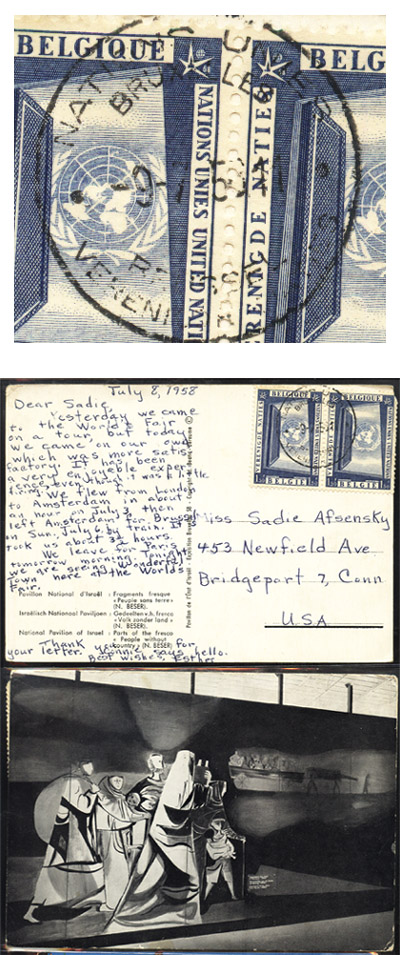 BELGIQUE
BELG
NATIONS UNIES
BRU
NATIONS UNIES UNITED NATI
RENIGDE NATIES
VERENI
July 8, 1958
Dear Sadie,
Yesterday we came
to the World's Fair
on a tour, but today
we came on our own
which was more satis
factory. It has been
a very enjoyable exper
ience, even though it was a little
tiring. We flew from London
to Amsterdam in about
an hour on July 3, then
left Amsterdam for Brussels
on Sun. July 6 by train. It
took us about 3½ hours.
We leave for Paris
tomorrow morning. Tonight
we are seeing "Wonderful
Town" here at the World's
Fair.
Pavillon National d'Israël : Fragments fresque
« Peuple sans terre »
(N. BESER).
Israëlisch Nationaal Paviljoen : Gedeelten v.h. fresco
« Volk zonder land »
(N. BESER).
National Pavilion of Israel : Parts of the fresco
« People without
country » (N. BESER)
Thank you for
your letter. Jennie says hello.
Best wishes, Esther
Pavillon de l'État d'Israël - Exposition Bruxelles 58 - Copyright
BELGIQUE
BELGIQUE
VERENIGDE NATIES
BELGIE
BELGIE
Miss Sadie Afsensky
453 Newfield Ave.
Bridgeport 7, Conn
USA